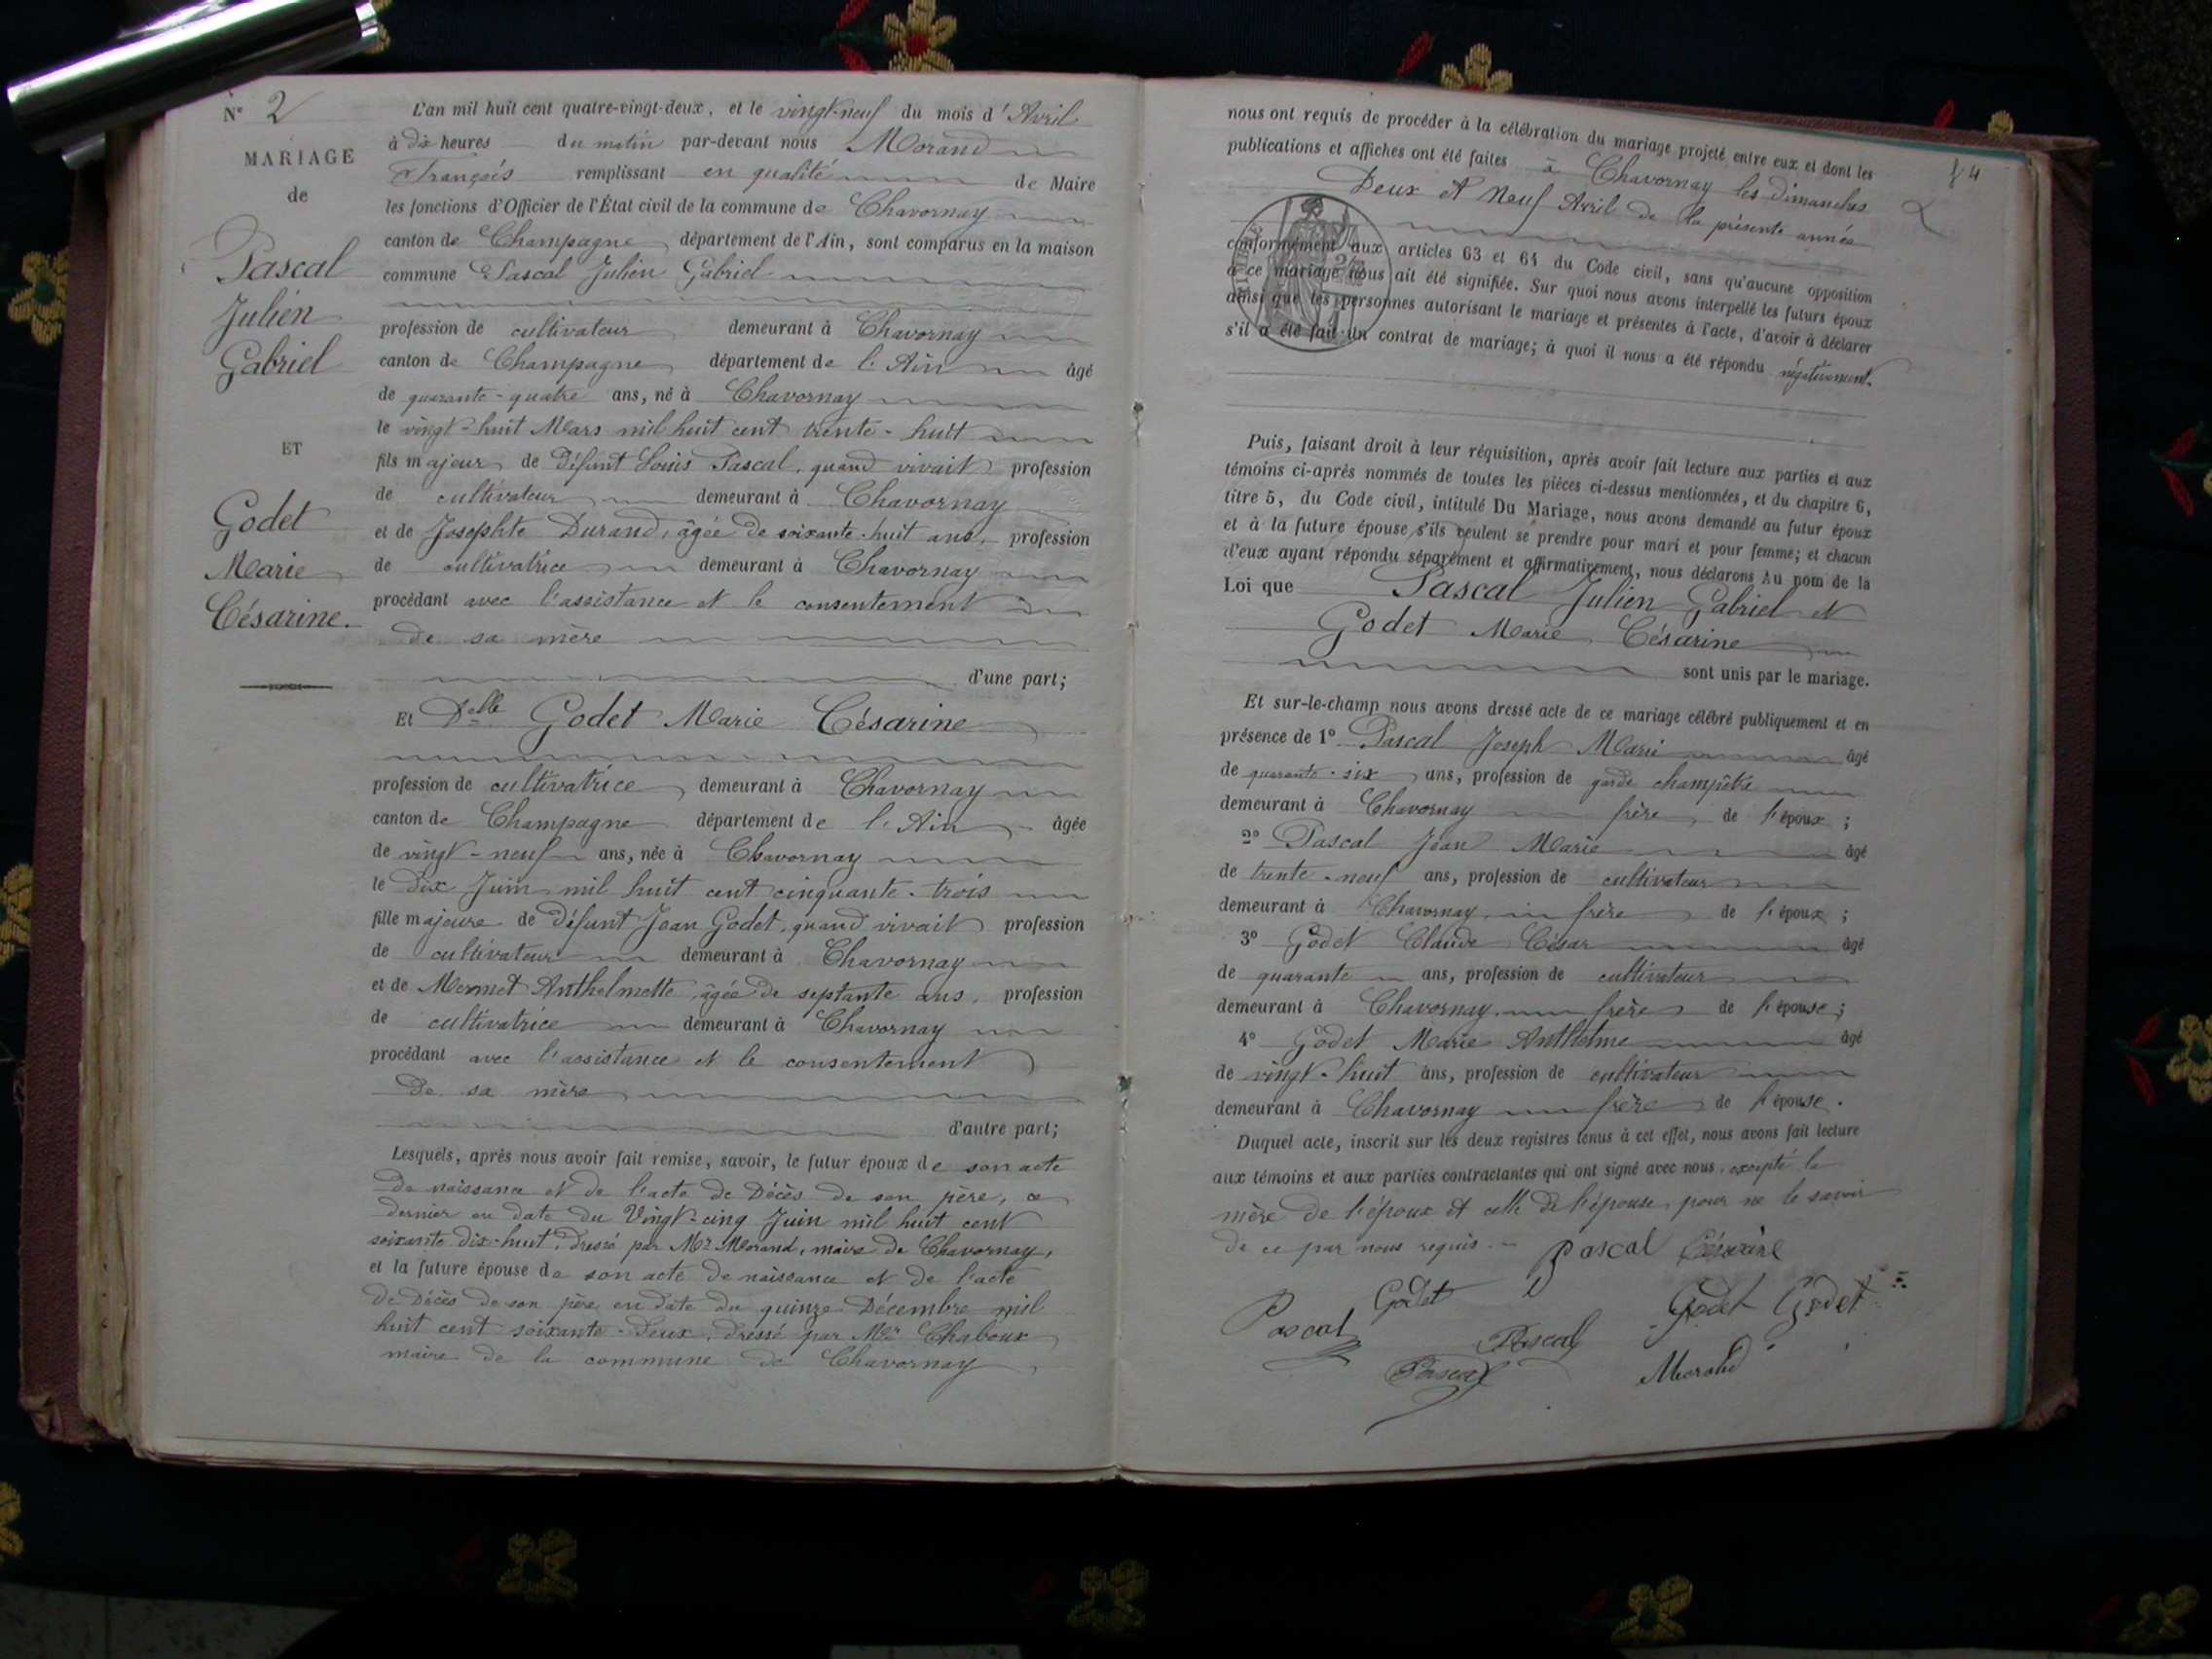 N° 2
MARIAGE
de
Pascal
Julien
Gabriel
ET
Godet
Marie
Césarine.
L'an mil huit cent quatre-vingt-deux, et le vingt-neuf du mois d'Avril
à dix heures du matin par-devant nous Morand
François remplissant en qualité de Maire
les fonctions d'Officier de l'État civil de la commune de Chavornay
canton de Champagne département de l'Ain, sont comparus en la maison
commune Pascal Julien Gabriel
profession de cultivateur demeurant à Chavornay
canton de Champagne département de l'Ain âgé
de quarante-quatre ans, né à Chavornay
le vingt-huit Mars mil huit cent trente-huit
fils majeur de défunt Louis Pascal, quand vivait profession
de cultivateur demeurant à Chavornay
et de Josephte Durand, âgée de soixante-huit ans, profession
de cultivatrice demeurant à Chavornay
procédant avec l'assistance et le consentement
de sa mère
d'une part;
Et Delle Godet Marie Césarine
profession de cultivatrice demeurant à Chavornay
canton de Champagne département de l'Ain âgée
de vingt-neuf ans, née à Chavornay
le dix Juin mil huit cent cinquante-trois
fille majeure de défunt Jean Godet, quand vivait profession
de cultivateur demeurant à Chavornay
et de Mermet Anthelmette, âgée de septante ans, profession
de cultivatrice demeurant à Chavornay
procédant avec l'assistance et le consentement
de sa mère
d'autre part;
Lesquels, après nous avoir fait remise, savoir, le futur époux de son acte
de naissance et de l'acte de décès de son père, ce
dernier en date du Vingt-cinq Juin mil huit cent
soixante dix-huit, dressé par Mr Morand, maire de Chavornay,
et la future épouse de son acte de naissance et de l'acte
de décès de son père en date du quinze Décembre mil
huit cent soixante-deux, dressé par Mr Chaboux
maire de la commune de Chavornay
nous ont requis de procéder à la célébration du mariage projeté entre eux et dont les
publications et affiches ont été faites à Chavornay les dimanches
Deux et Neuf Avril de la présente année
conformément aux articles 63 et 64 du Code civil, sans qu'aucune opposition
à ce mariage nous ait été signifiée. Sur quoi nous avons interpellé les futurs époux
ainsi que les personnes autorisant le mariage et présentes à l'acte, d'avoir à déclarer
s'il a été fait un contrat de mariage; à quoi il nous a été répondu négativement.
Puis, faisant droit à leur réquisition, après avoir fait lecture aux parties et aux
témoins ci-après nommés de toutes les pièces ci-dessus mentionnées, et du chapitre 6,
titre 5, du Code civil, intitulé Du Mariage, nous avons demandé au futur époux
et à la future épouse s'ils veulent se prendre pour mari et pour femme; et chacun
d'eux ayant répondu séparément et affirmativement, nous déclarons Au nom de la
Loi que Pascal Julien Gabriel et
Godet Marie Césarine
sont unis par le mariage.
Et sur-le-champ nous avons dressé acte de ce mariage célébré publiquement et en
présence de 1° Pascal Joseph Marie âgé
de quarante-six ans, profession de garde champêtre
demeurant à Chavornay frère de l'époux ;
2° Pascal Jean Marie âgé
de trente-neuf ans, profession de cultivateur
demeurant à Chavornay frère de l'époux ;
3° Godet Claude César âgé
de quarante ans, profession de cultivateur
demeurant à Chavornay frère de l'épouse ;
4° Godet Marie Anthelme âgé
de vingt-huit ans, profession de cultivateur
demeurant à Chavornay frère de l'épouse.
Duquel acte, inscrit sur les deux registres tenus à cet effet, nous avons fait lecture
aux témoins et aux parties contractantes qui ont signé avec nous, excepté la
mère de l'époux et celle de l'épouse pour ne le savoir
de ce par nous requis.
Pascal Césarine
Pascal Godet Godet Godet
Pascal
Pascal Morand